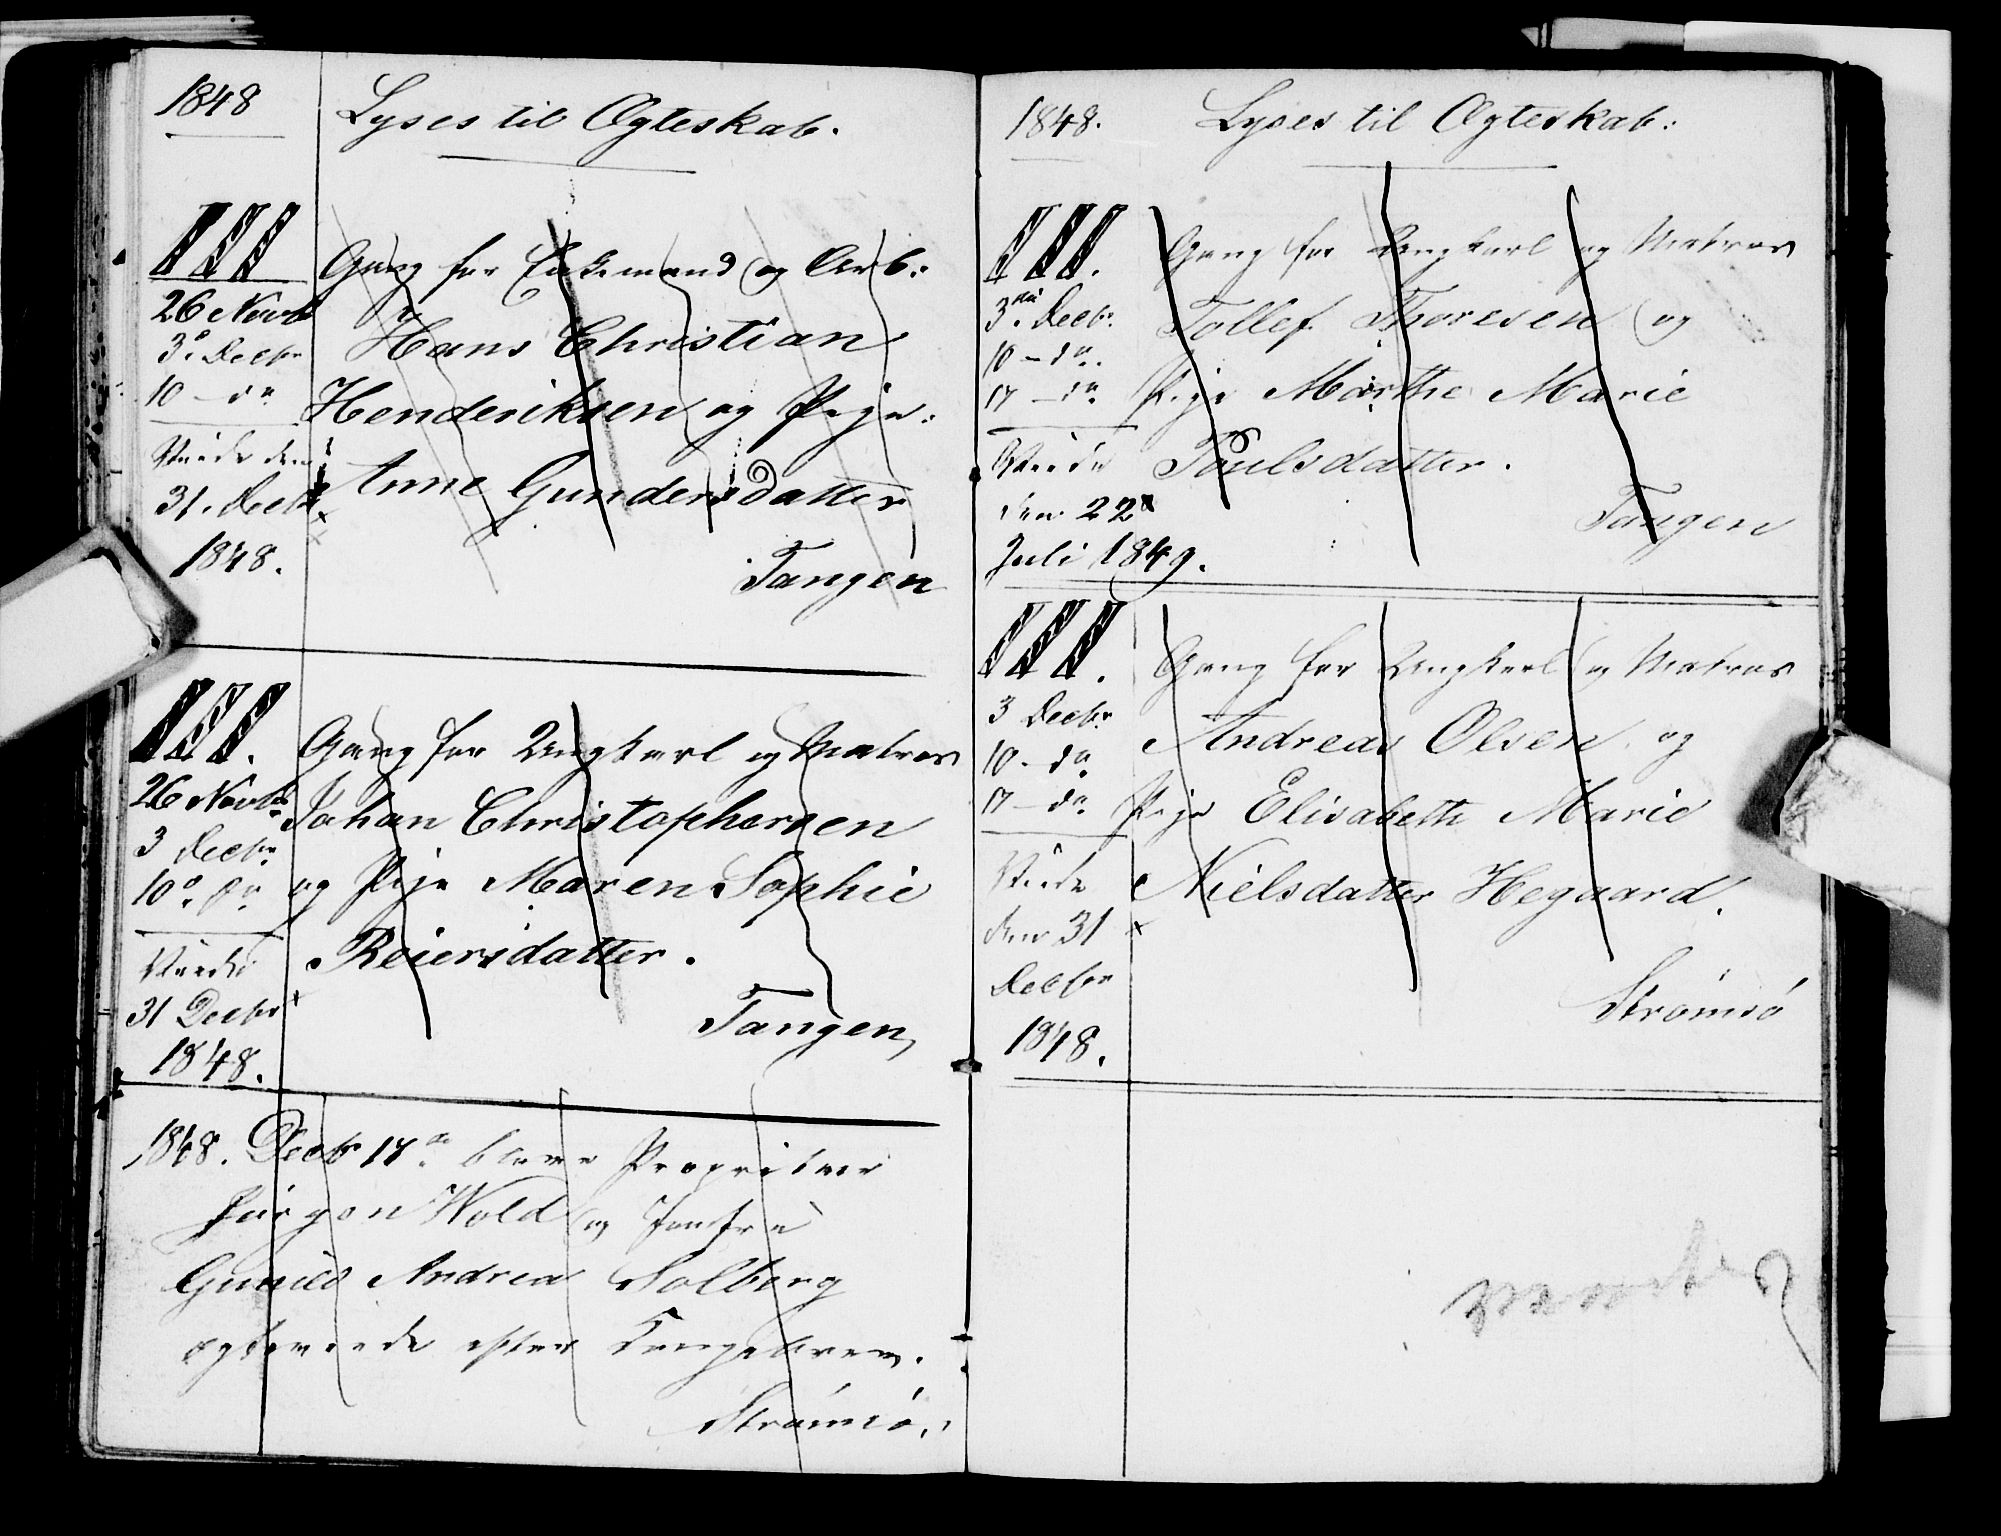 1848
Lyses til Ægteskab.
III
Gang for Enkemand og Arb:
26 Novb
Hans Christian
3die Decbr
Henderiksen og Pige:
10 — do
Anne Gundersdatter
Viede den
31. Decbr
1848.
Tangen
III.
Gang for Ungkarl og Matros
26 Novbr
Johan Christophersen
3 Decbr
og Pige Maren Sophie
10de do
Reiersdatter.
Viede
31 Decbr
Tangen,
1848.
1848. Decbr 17de bleve Propritær
Jürgen Wold og Jomfru
Gunild Andrea Solberg
ægteviede efter Kongebrev.
Strömsö.
1848.
Lyses til Ægteskab:
III.
Gang for Ungkarl og Matros
3die Decbr.
Tollef Thoresen og
10 — do.
17 — do
Pige Marthe Marie
Viede
Poulsdatter.
den 22de
Tangen
Juli 1849.
III.
Gang for Ungkarl og Matros
3 Decbr
Andreas Olsen og
10. do
17 — do
Pige Elisabeth Marie
Viede
Nielsdatter Hegaard.
den 31
Decbr
Strömsö
1848.